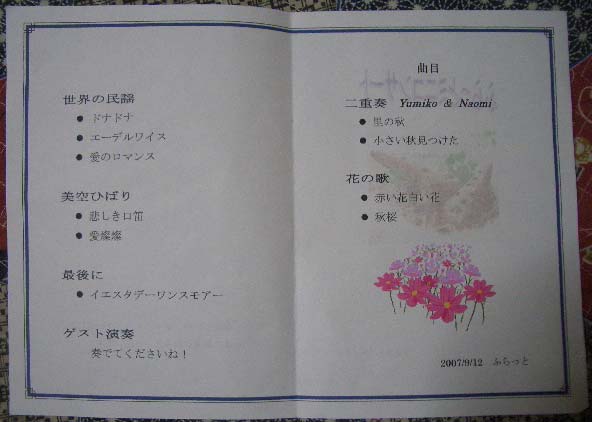 曲目
二重奏 Yumiko & Naomi
● 里の秋
● 小さい秋見つけた
花の歌
● 赤い花白い花
● 秋桜
2007/9/12 ふらっと
世界の民謡
● ドナドナ
● エーデルワイス
● 愛のロマンス
美空ひばり
● 悲しき口笛
● 愛燦燦
最後に
● イエスタデーワンスモアー
ゲスト演奏
奏でてくださいね！